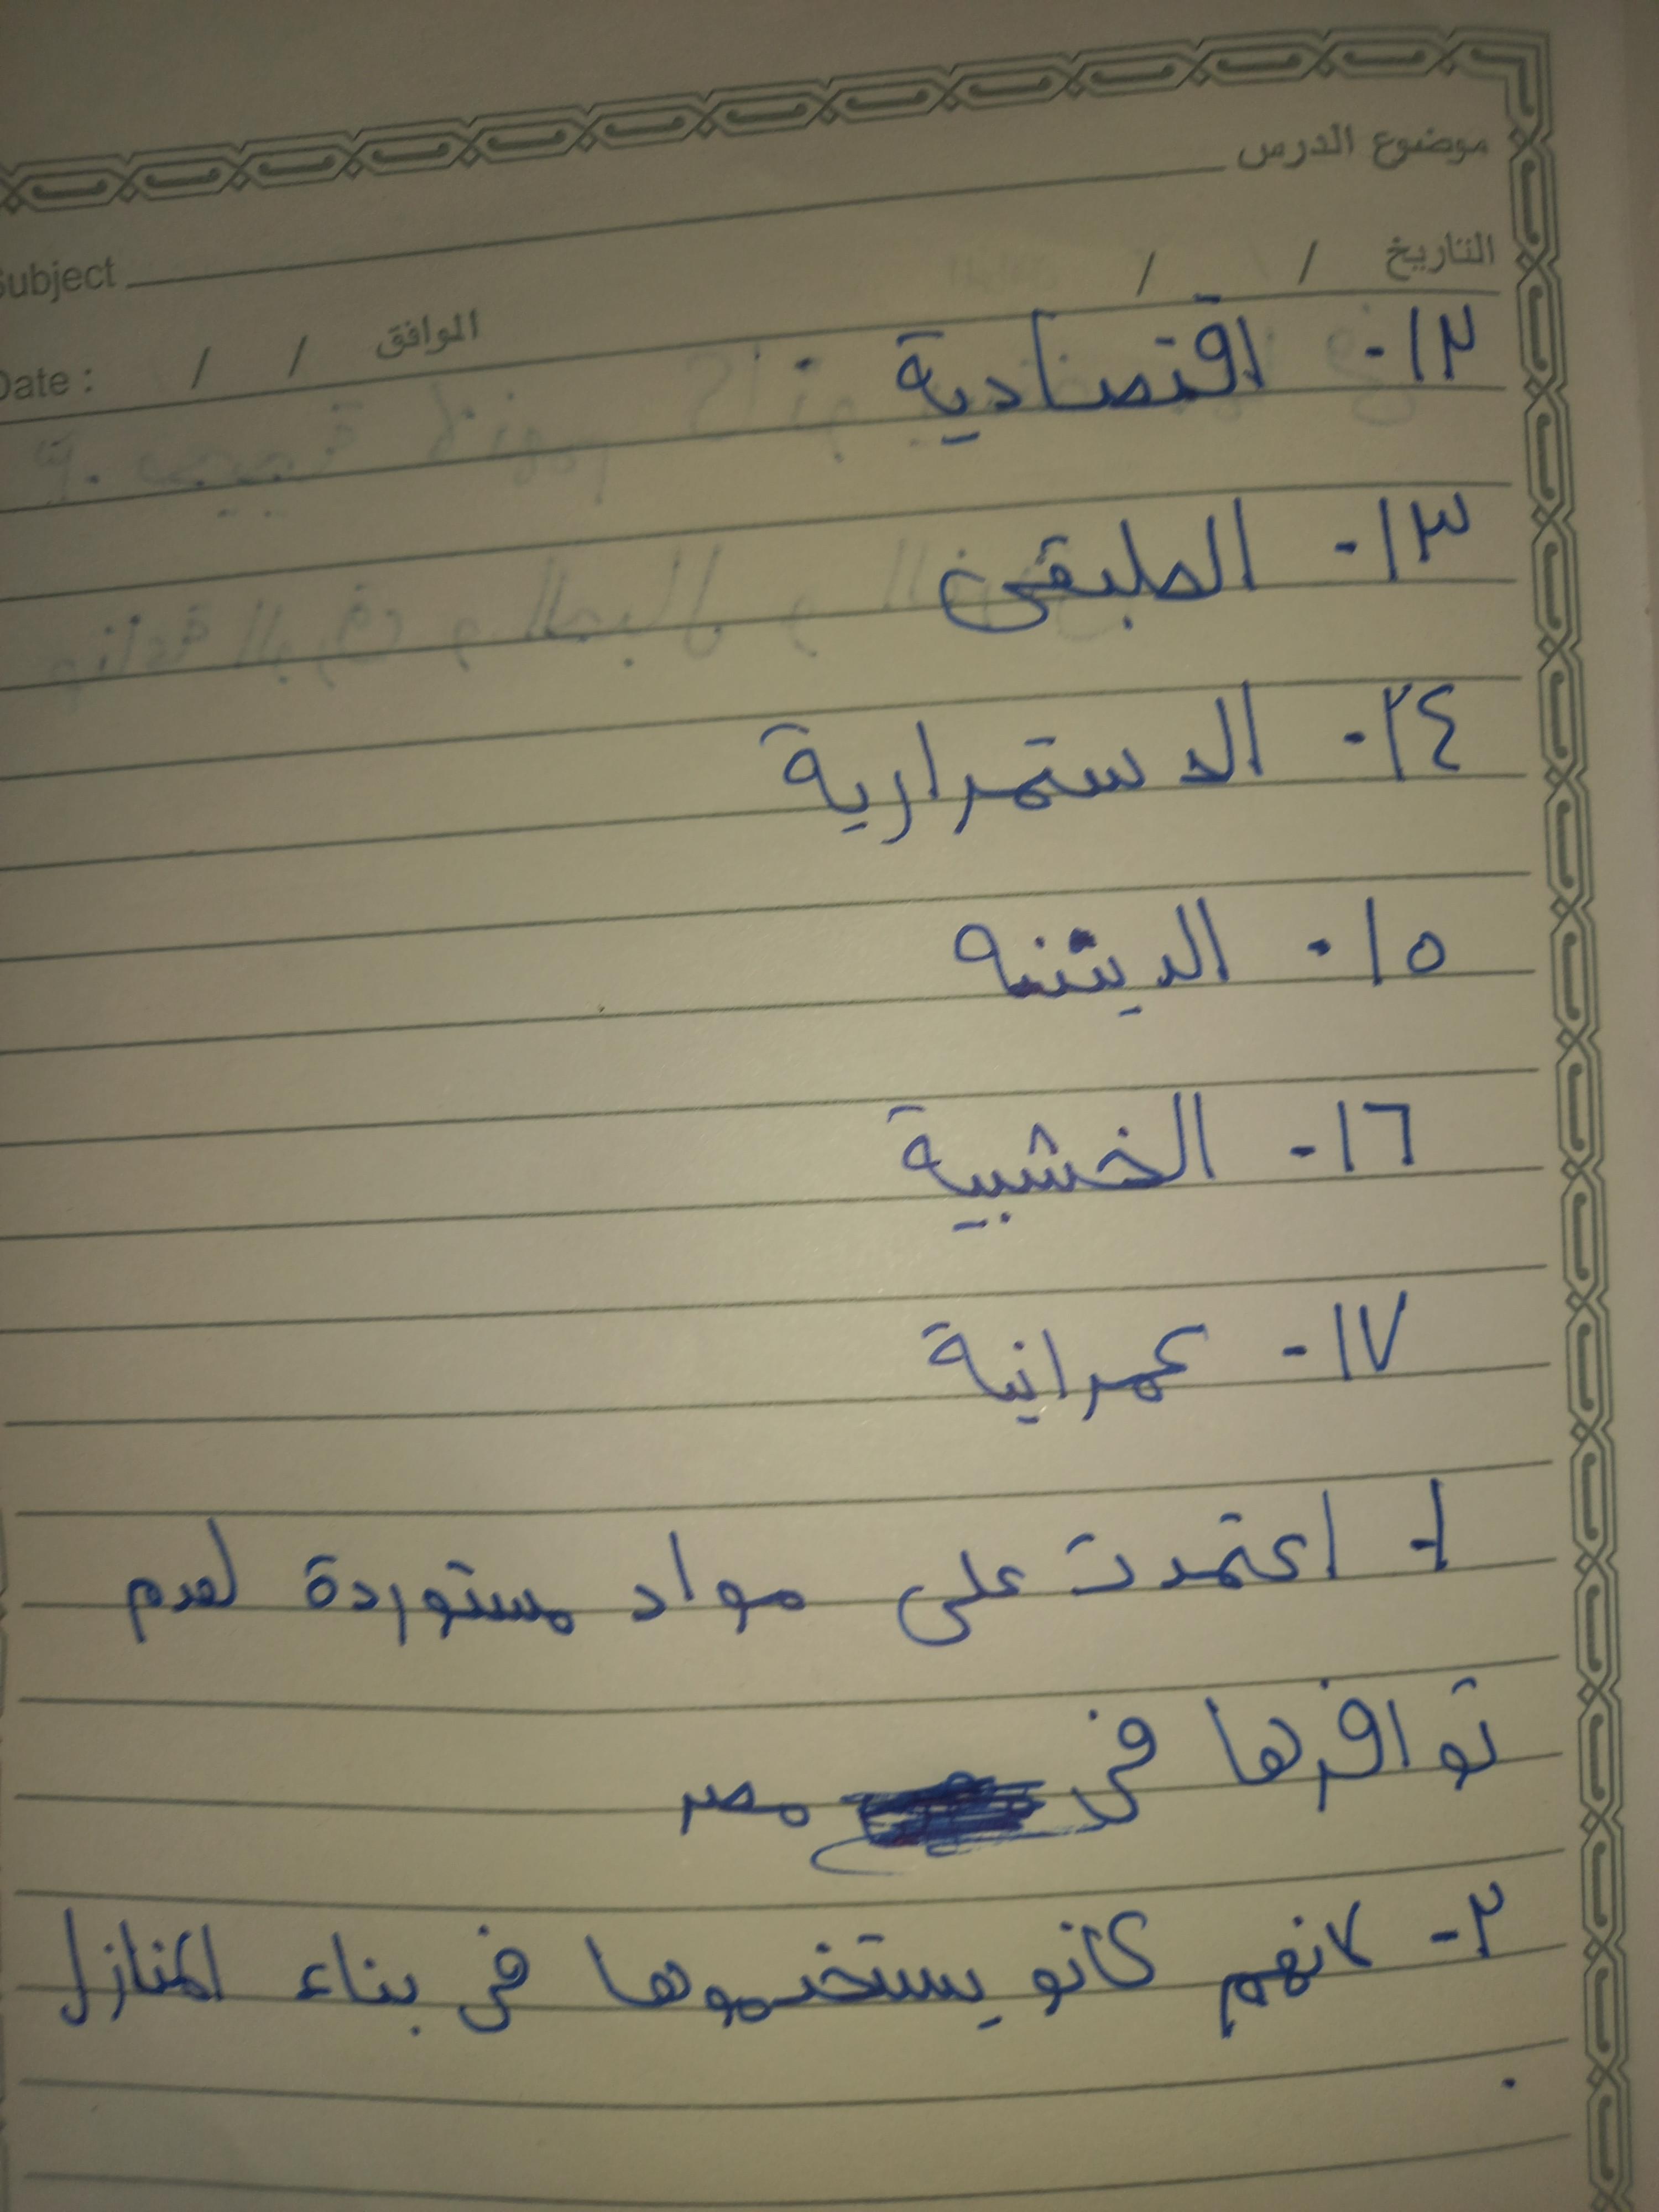 موضوع الدرس
Subject
التاريخ / /
Date : / / الموافق
١٢- اقتصادية .
١٣- الطبقى
١٤- الاستمرارية
١٥- الدينيه
١٦- الخشبية
١٧- عمرانية
١- اعتمدت على مواد مستوردة لعدم
توافرها فى مصر
٢- لانهم كانو يستخدموها فى بناء المنازل
.